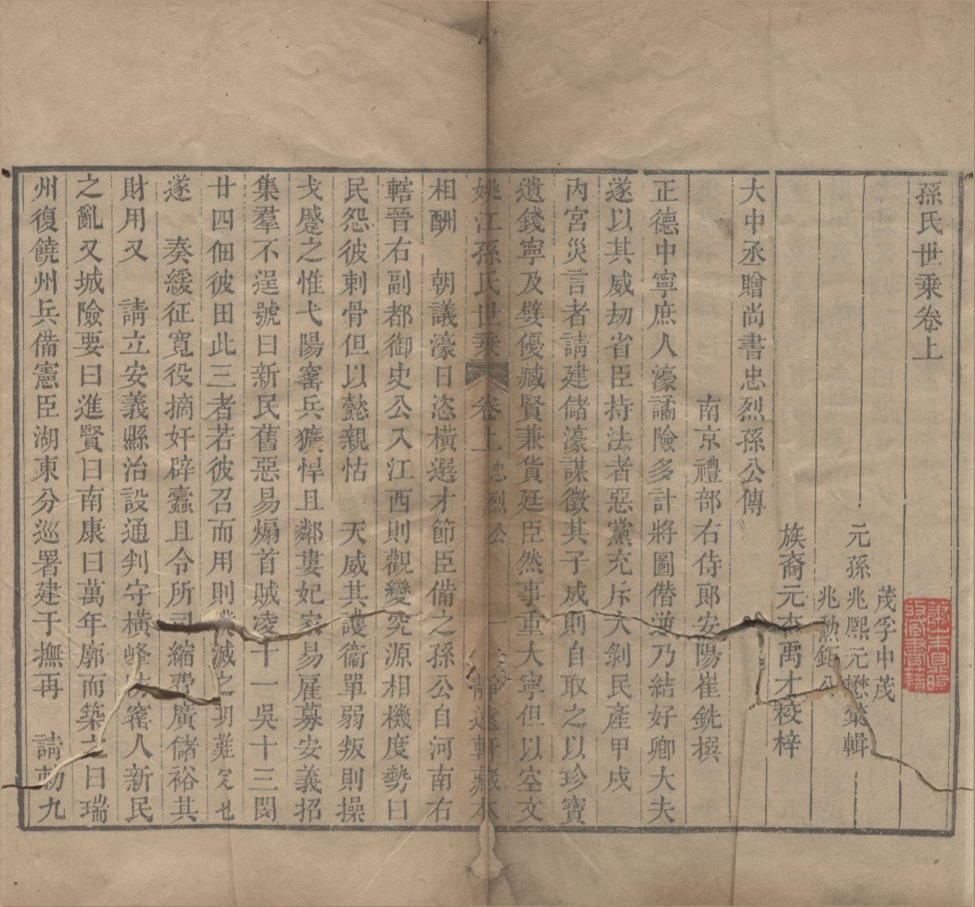 孫氏世乘卷上
茂孚中茂
元孫兆熙元懋彙輯
兆勳鉅
族裔元杏禹才校梓
大中丞贈尚書忠烈孫公傳
南京禮部右侍郎安陽崔銑撰
正德中寧庶人濠譎險多計將圖僭逆乃結好卿大夫
遂以其威劫省臣持法者惡黨充斥大剝民產甲戌
內宮災言者請建儲濠謀徵其子成則自取之以珍寶
遺錢寧及嬖優臧賢兼貨廷臣然事重大寧但以空文
姚江孫氏世乘 卷上 忠烈公 靜遠軒藏本
相酬 朝議濠日恣橫選才節臣備之孫公自河南右
轄晉右副都御史公入江西則觀變究源相機度勢曰
民怨彼刺骨但以懿親怙 天威其護衛單弱叛則操
戈蹙之惟弋陽窰兵獷悍且鄰婁妃家易雇募安義招
集羣不逞號曰新民舊惡易煽首賊凌十一吳十三閔
廿四佃彼田此三者若彼召而用則撲滅之期難定也
遂 奏緩征寬役摘奸辟蠹且令所司縮費廣儲裕其
財用又 請立安義縣治設通判守橫峰 窰人新民
之亂又城險要曰進賢曰南康曰萬年廓而築之曰瑞
州復饒州兵備憲臣湖東分巡署建于撫再 請勑九